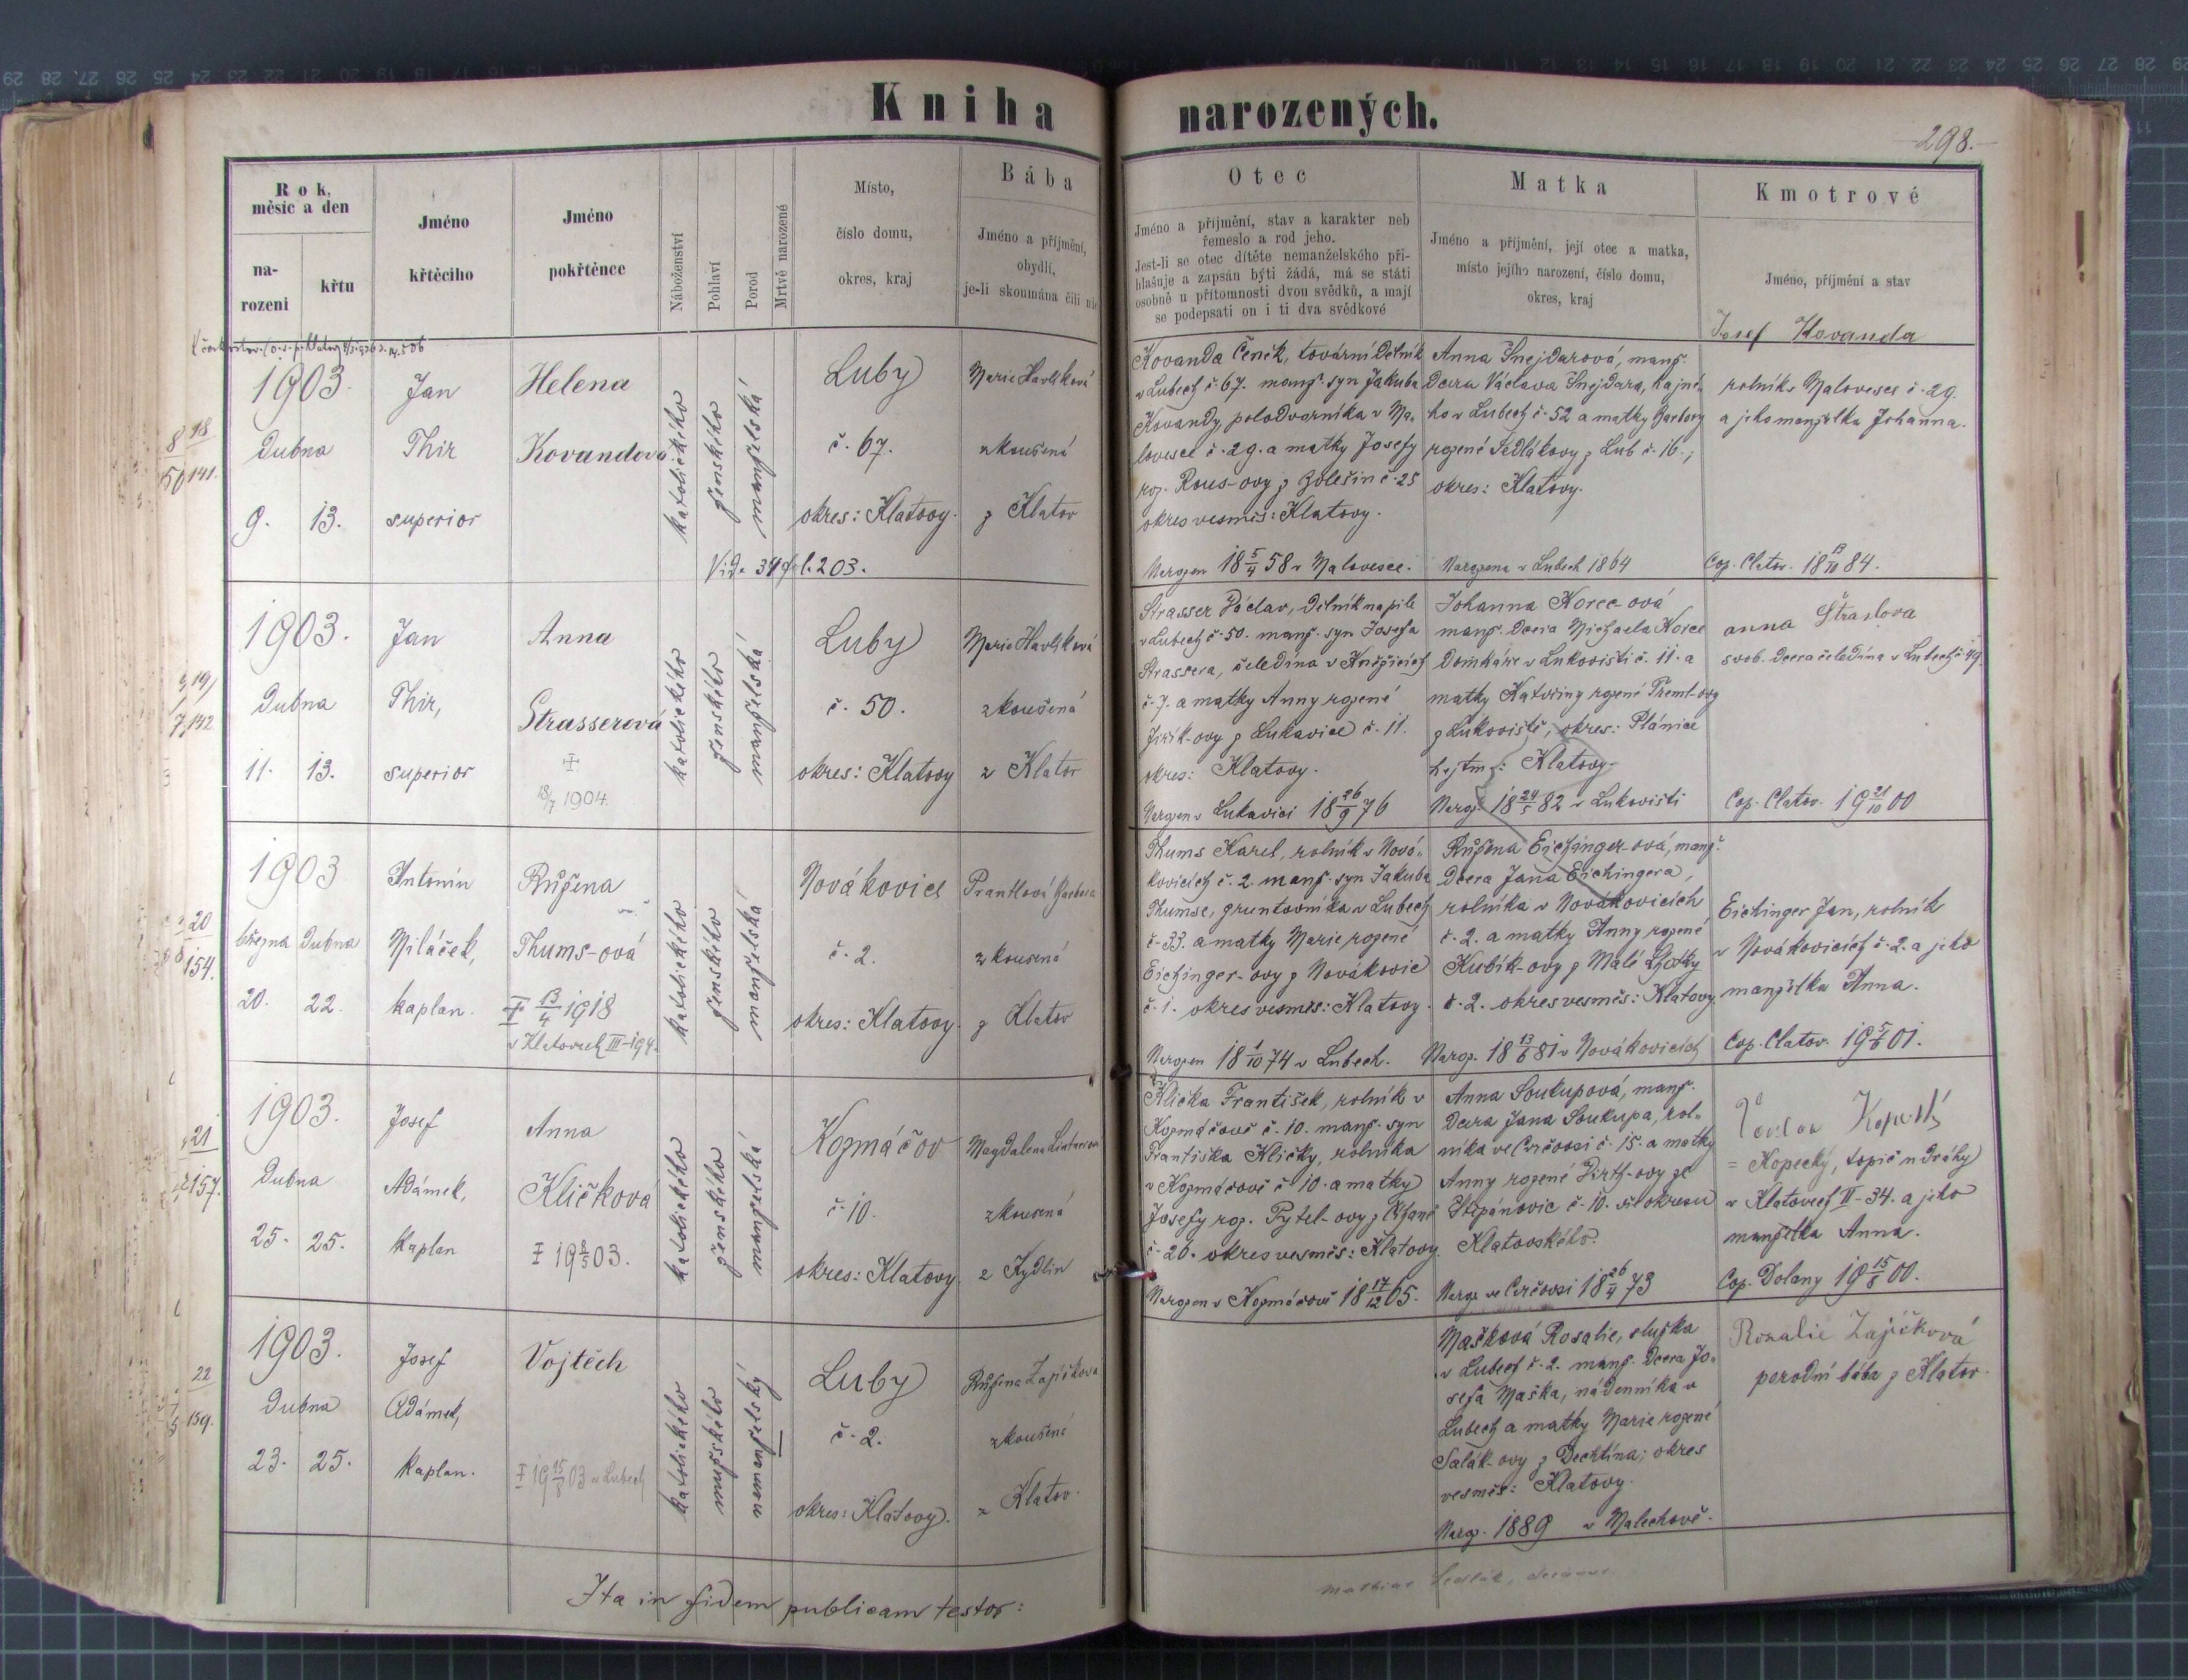 Kniha narozených.
298.
Rok, měsíc a den
narození
křtu
Jméno křtěcího
Jméno pokřtěnce
Náboženství
Pohlaví
Porod
Mrtvě narozené
Místo, číslo domu, okres, kraj
Bába
Jméno a příjmění, obydlí, je-li skoumána čili nic
Otec
Jméno a příjmění, stav a karakter neb
řemeslo a rod jeho.
Jest-li se otec dítěte nemanželského při-
hlašuje a zapsán býti žádá, má se státi
osobně u přítomnosti dvou svědků, a mají
se podepsati on i ti dva svědkové
Matka
Jméno a příjmění, její otec a matka,
místo jejího narození, číslo domu,
okres, kraj
Kmotrové
Jméno, příjmění a stav
18
141.
1903.
Dubna
9. 13.
Jan
Thir
superior
Helena
Kovandová
katolického
ženského
manželská
Vide
203.
Luby
č. 67.
okres: Klatovy.
Marie Havlíková
zkoušená
z Klatov
Kovanda Čeněk, tovární dělník
v Lubech č. 67. manž. syn Jakuba
Kovandy, polodvorníka v Ma-
lovesce č. 29. a matky Josefy
roz. Rous-ovy z č. 25
okres vesměs: Klatovy.
Narozen 18 5/4 58 v Malovesce.
Anna Šnejdarová, manž.
dcera Václava Šnejdara, hajné-
ho v Lubech č. 52 a matky Barbory
rozené Sedlákovy z Lub č. 16.;
okres: Klatovy.
Narozena v Lubech 1864
Josef Kovanda
rolník z Malovesce č. 29.
a jeho manželka Johanna.
Cop. Clatov. 18 /10 84.
19
142
1903.
Dubna
11. 13.
Jan
Thir,
superior
Anna
Strasserová
18/7 1904.
katolického
ženského
manželská
Luby
č. 50.
okres: Klatovy
Marie Havlíková
zkoušená
z Klatov
Strasser Václav, dělník na pile
v Lubech č. 50. manž. syn Josefa
Strassera, čeledína v
č. 7. a matky Anny rozené
Jiřík-ovy z Lukavice č. 11.
okres: Klatovy.
Narozen v Lukavici 18 26/9 76
Johanna Korec-ová
manž. dcera Michaela Korce
domkáře v Lukovišti č. 11. a
matky Kateřiny rozené Treml-ovy
z Lukoviště, okres: Plánice
hejtm.: Klatovy.
Naroz. 18 24/5 82 v Lukovišti
Anna
svob. dcera čeledína v Lubech č. 49.
Cop. Clatov. 19 21/10 00
20
154.
1903
března Dubna
20. 22.
Antonín
Miláček,
kaplan.
Růžena
Thums-ová
13/4 1918
v Klatovech III-194.
katolického
ženského
manželská
Novákovice
č. 2.
okres: Klatovy.
Prantlová Barbora
zkoušená
z Klatov
Thums Karel, rolník v Nová-
kovicích č. 2. manž. syn Jakuba
Thumse, gruntovníka v Lubech
č. 33. a matky Marie rozené
Eichinger-ovy z Novákovic
č. 1. okres vesměs: Klatovy.
Narozen 18 1/10 74 v Lubech.
Růžena Eichinger-ová, manž.
dcera Jana Eichingera,
rolníka v Novákovicích
č. 2. a matky Anny rozené
Kubík-ovy z Malé Lhotky
č. 2. okres vesměs: Klatovy.
Naroz. 18 13/6 81 v Novákovicích
Eichinger Jan, rolník
v Novákovicích č. 2. a jeho
manželka Anna.
Cop. Clatov. 19 5/6 01.
21
157.
1903.
Dubna
25. 25.
Josef
Adámek,
kaplan
Anna
Kličková
19 8/5 03.
katolického
ženského
manželská
Kozmáčov
č. 10.
okres: Klatovy.
Magdalena
zkoušená
z Kydlin
Klička František, rolník v
Kozmáčově č. 10. manž. syn
Františka Kličky, rolníka
v Kozmáčově č. 10. a matky
Josefy roz. Pytel-ovy z
č. 26. okres vesměs: Klatovy.
Narozen v Kozmáčově 18 17/12 65.
Anna Soukupová, manž.
dcera Jana Soukupa, rol-
níka ve Crčovsi č. 15. a matky
Anny rozené ze
Štěpánovic č. 10. vše okresu
Klatovského.
Naroz. ve Crčovsi 18 26/4 73
Václav Kopecký
= Kopecký, topič u dráhy
v Klatovech II-34. a jeho
manželka Anna.
Cop. Dolany 19 15/8 00.
22
159.
1903.
Dubna
23. 25.
Josef
Adámek,
kaplan.
Vojtěch
19 15/8 03 v Lubech
katolického
mužského
nemanželský
Luby
č. 2.
okres: Klatovy.
Růžena Zajíčková
zkoušená
z Klatov.
Mašková Rosalie, služka
v Lubech č. 2. manž. dcera Jo-
sefa Maška, nádenníka v
Lubech a matky Marie rozené
Salák-ovy z Dechtína; okres
vesměs: Klatovy.
Naroz. 1889 v Malechově.
Rozalie Zajíčková
porodní bába z Klatov.
Ita in fidem publicam testor:
Mathias Sedlák,